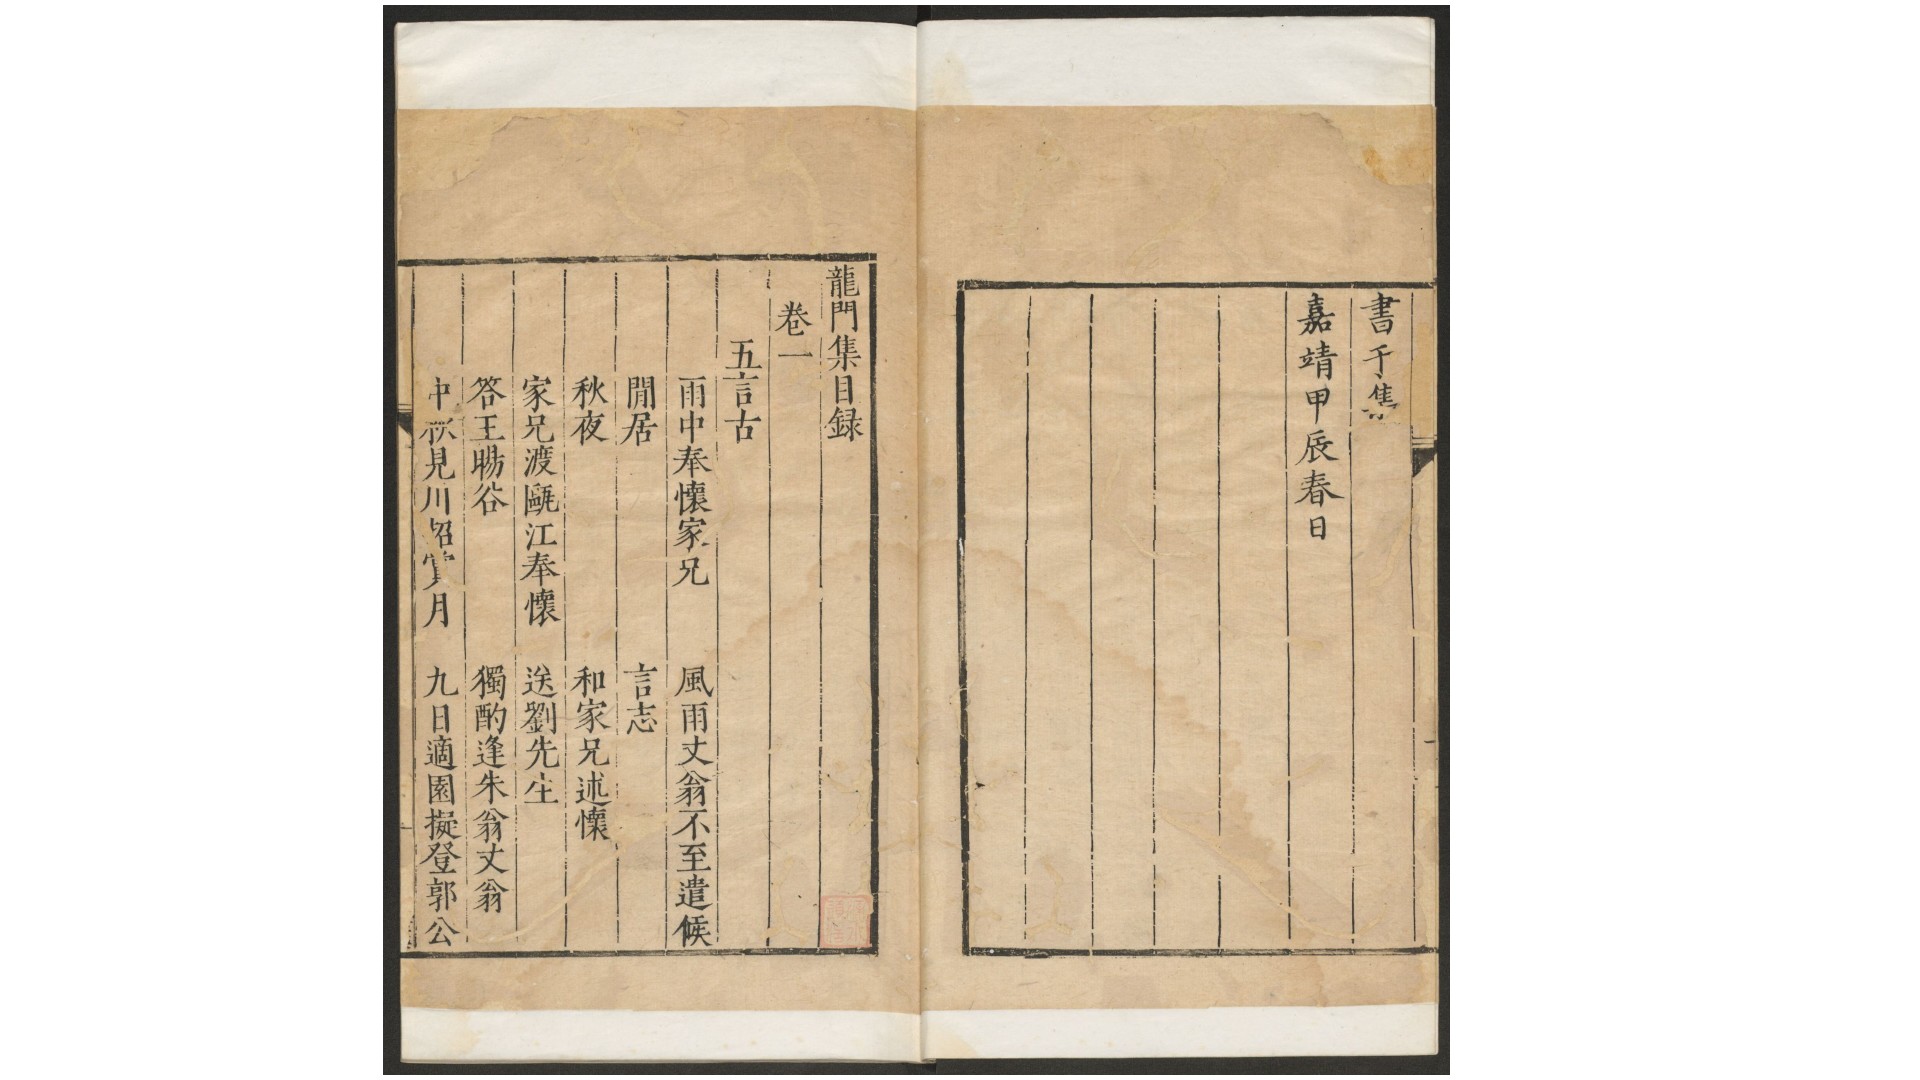 書于集
嘉靖甲辰春日
龍門集目録
卷一
五言古
雨中奉懷家兄
風雨丈翁不至遣候
閒居
言志
秋夜
和家兄述懷
家兄渡甌江奉懷
送劉先生
答王暘谷
獨酌逢朱翁丈翁
中秋見川招賞月
九日適園擬登郭公